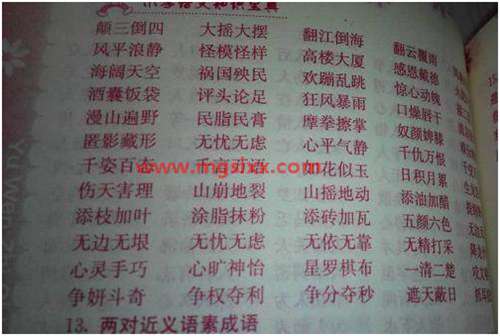 小学语文知识宝典
颠三倒四 大摇大摆 翻江倒海 翻云覆雨
风平浪静 怪模怪样 高楼大厦 感恩戴德
海阔天空 祸国殃民 欢蹦乱跳 惊心动魄
酒囊饭袋 评头论足 狂风暴雨 口燥唇干
漫山遍野 民脂民膏 摩拳擦掌 奴颜婢膝
匿影藏形 无忧无虑 心平气静 千仇万恨
千姿百态 如花似玉 日积月累
伤天害理 山崩地裂 山摇地动 添油加醋
添枝加叶 涂脂抹粉 添砖加瓦 五颜六色
无边无垠 无忧无虑 无依无靠 无精打采
心灵手巧 心旷神怡 星罗棋布 一清二楚
争妍斗奇 争权夺利 争分夺秒 遮天蔽日
13. 两对近义语素成语
www.mgslxx.com